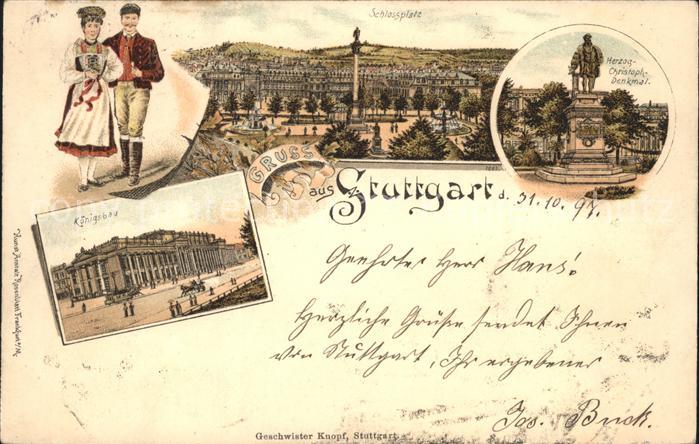 Schlossplatz
Herzog-
Christoph-
Denkmal.
GRUSS
aus Stuttgart d. 31.10.97.
Königsbau
Geehrter Herr Hans!
Herzliche Grüße sendet Ihnen
von Stuttgart, Ihr ergebener
Jos. Buck.
Geschwister Knopf, Stuttgart.